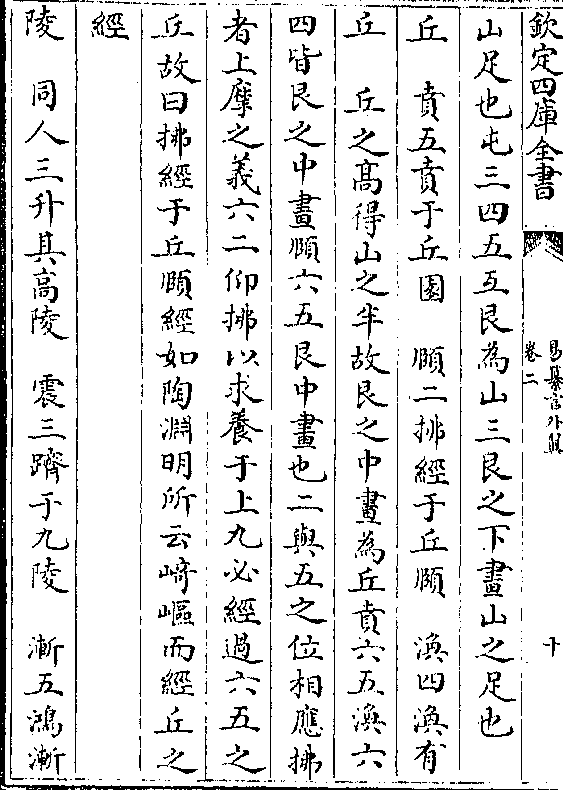 欽定四庫全書
易纂言外翼
卷二
十
山足也屯三四五互艮為山三艮之下畫山之足也
丘　賁五賁于丘園　頤二拂經于丘頤　渙四渙有
丘　丘之髙得山之半故艮之中畫為丘賁六五渙六
四皆艮之中畫頤六五艮中畫也二與五之位相應拂
者上摩之義六二仰拂以求養于上九必經過六五之
丘故曰拂經于丘頤經如陶淵明所云﨑嶇而經丘之
經
陵　同人三升其高陵　震三躋于九陵　漸五鴻漸